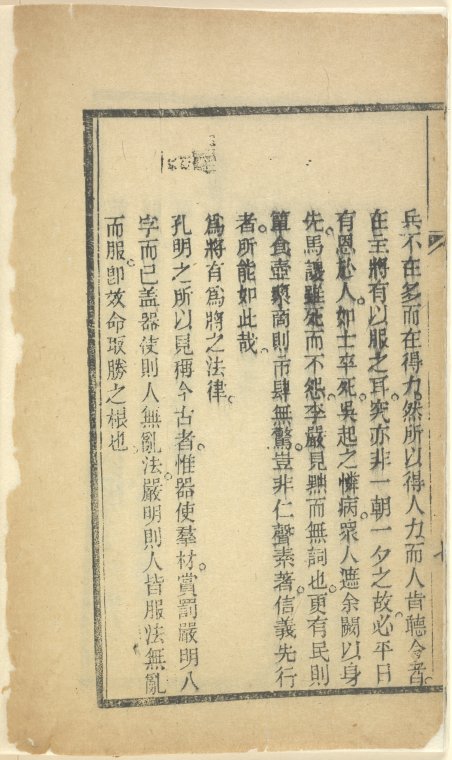 兵不在多而在得力然所以得人力而人肯聽令者。
在主將有以服之耳。究亦非一朝一夕之故。必平日
有恩於人。如士卒死。吳起之憐病。眾人遮余闕以身
先。馬謖雖死而不怨。李嚴見黜而無詞也。更有民則
簞食壺漿。商則市肆無驚。豈非仁聲素著。信義先行
者。所能如此哉。
為將有為將之法律。
孔明之所以見稱今古者。惟器使羣材。賞罰嚴明八
字而已。盖器使則人無亂法。嚴明則人皆服法無亂
而服。卽效命取勝之根也